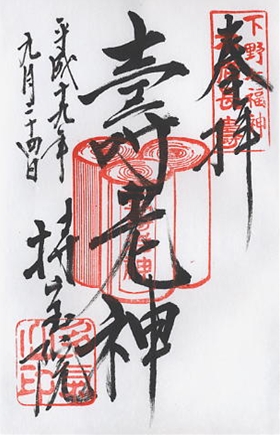 奉拝
下野七福神
不老長寿
壽老神
平成十九年
九月二十四日
持宝院